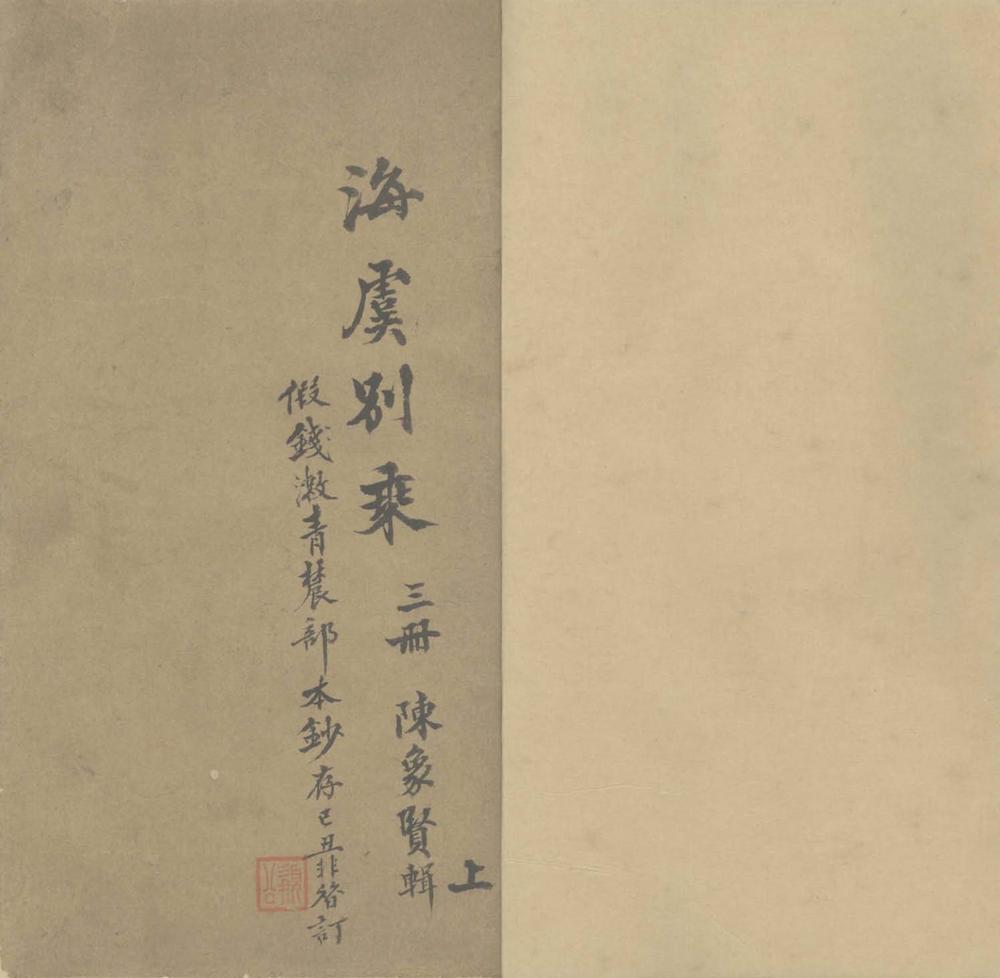 海虞別乘 三冊 陳象賢輯
上
假錢漱青農部本鈔存己丑非昔訂